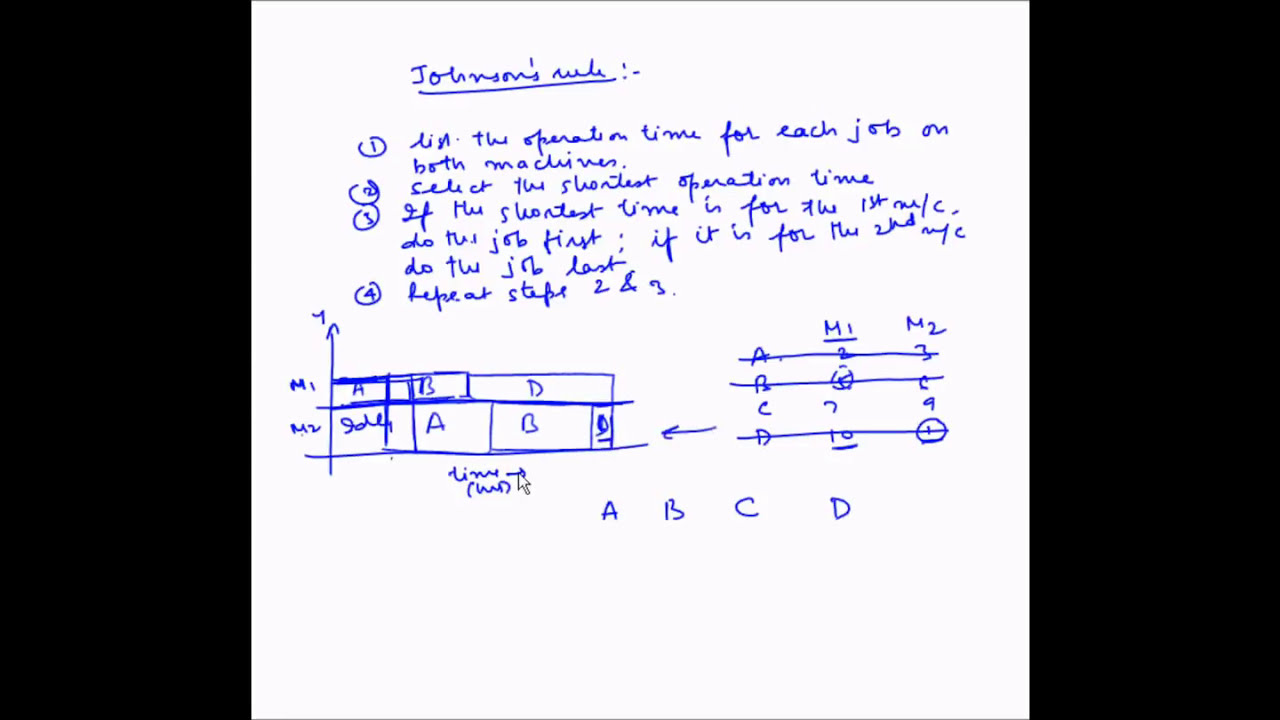 Johnson's rule :-
① list the operation time for each job on
both machines.
② Select the shortest operation time
③ If the shortest time is for the 1st m/c.
do the job first ; if it is for the 2nd m/c
do the job last
④ Repeat steps 2 & 3.
Y
M1 M2
A 2 3
B 5
C 7 9
D 10 1
M1 A B D
M2 Idle A B D
time →
(hrs)
A B C D